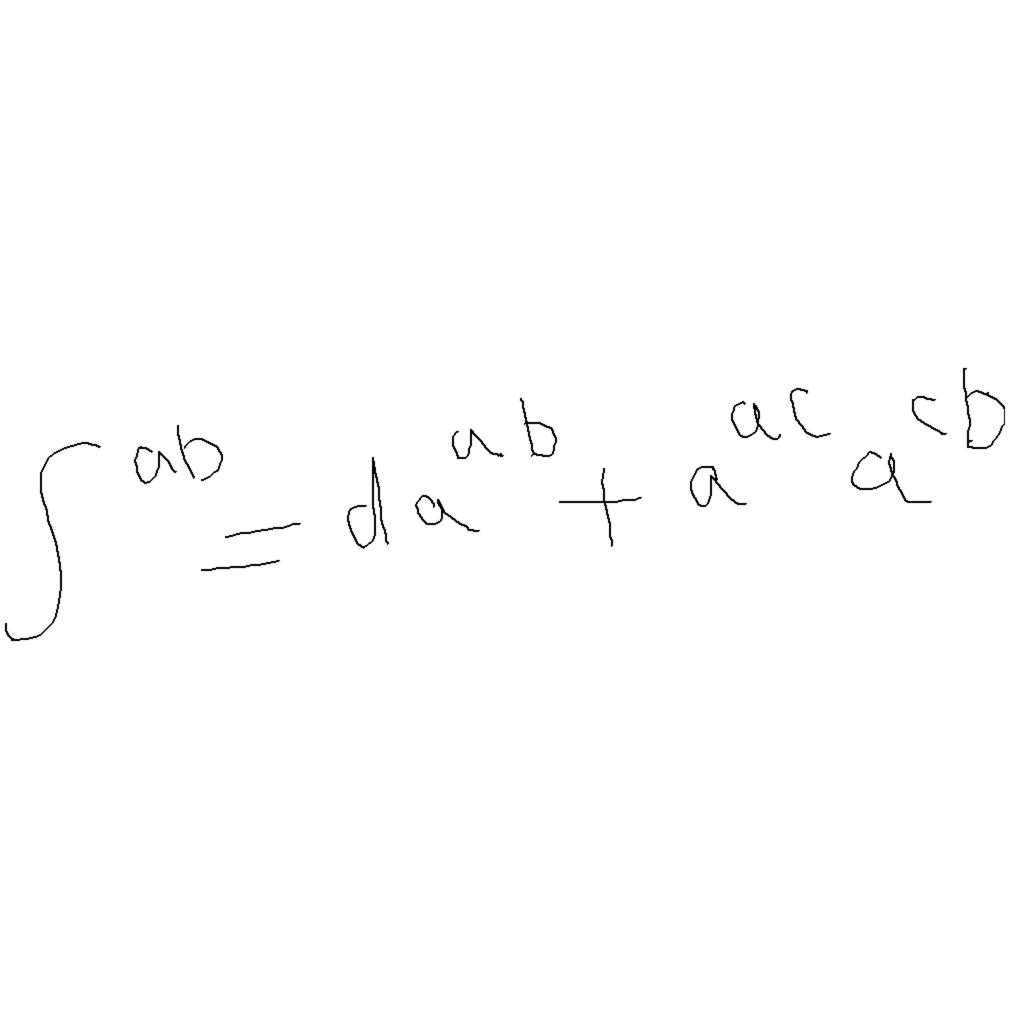 ∫^{ab} = da^{ab} + a^{ac} a^{cb}